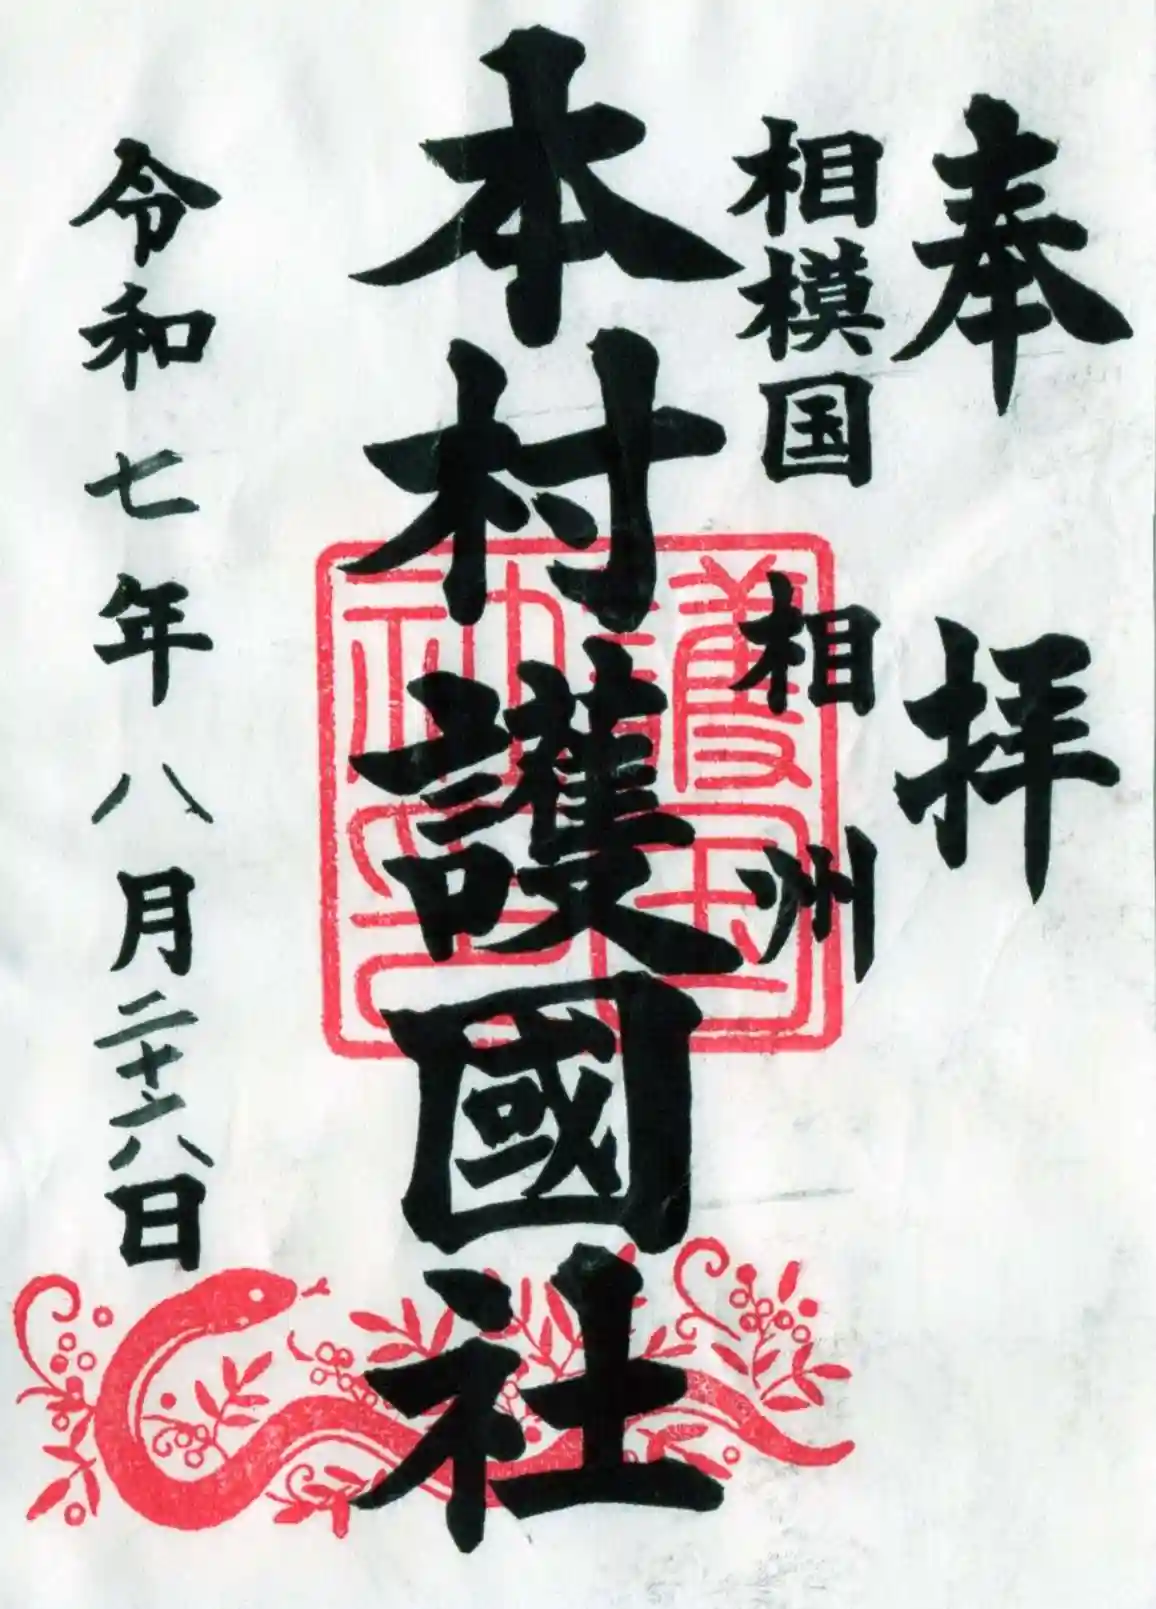 奉拝
相模国 相州
本村護國社
令和七年八月二十六日
護国神社之印